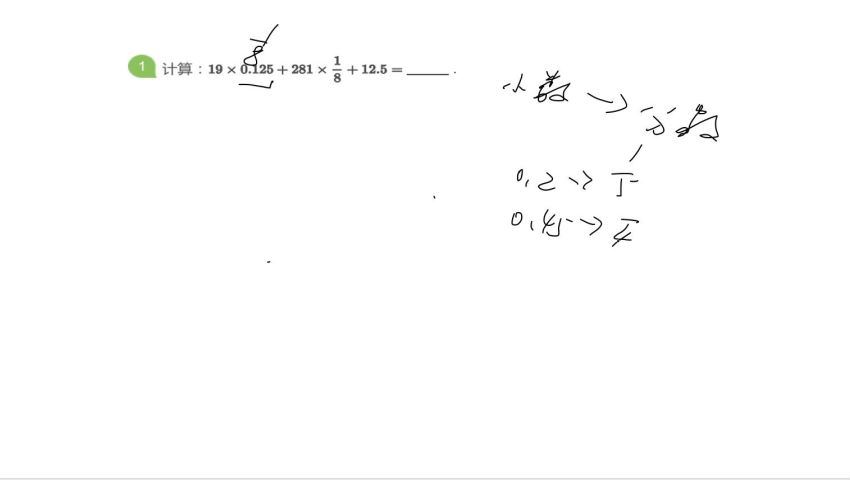 1 计算：19 × 0.125 + 281 × 1/8 + 12.5 = ____ .
1/8
小数 → 分数
0.2 → 1/5